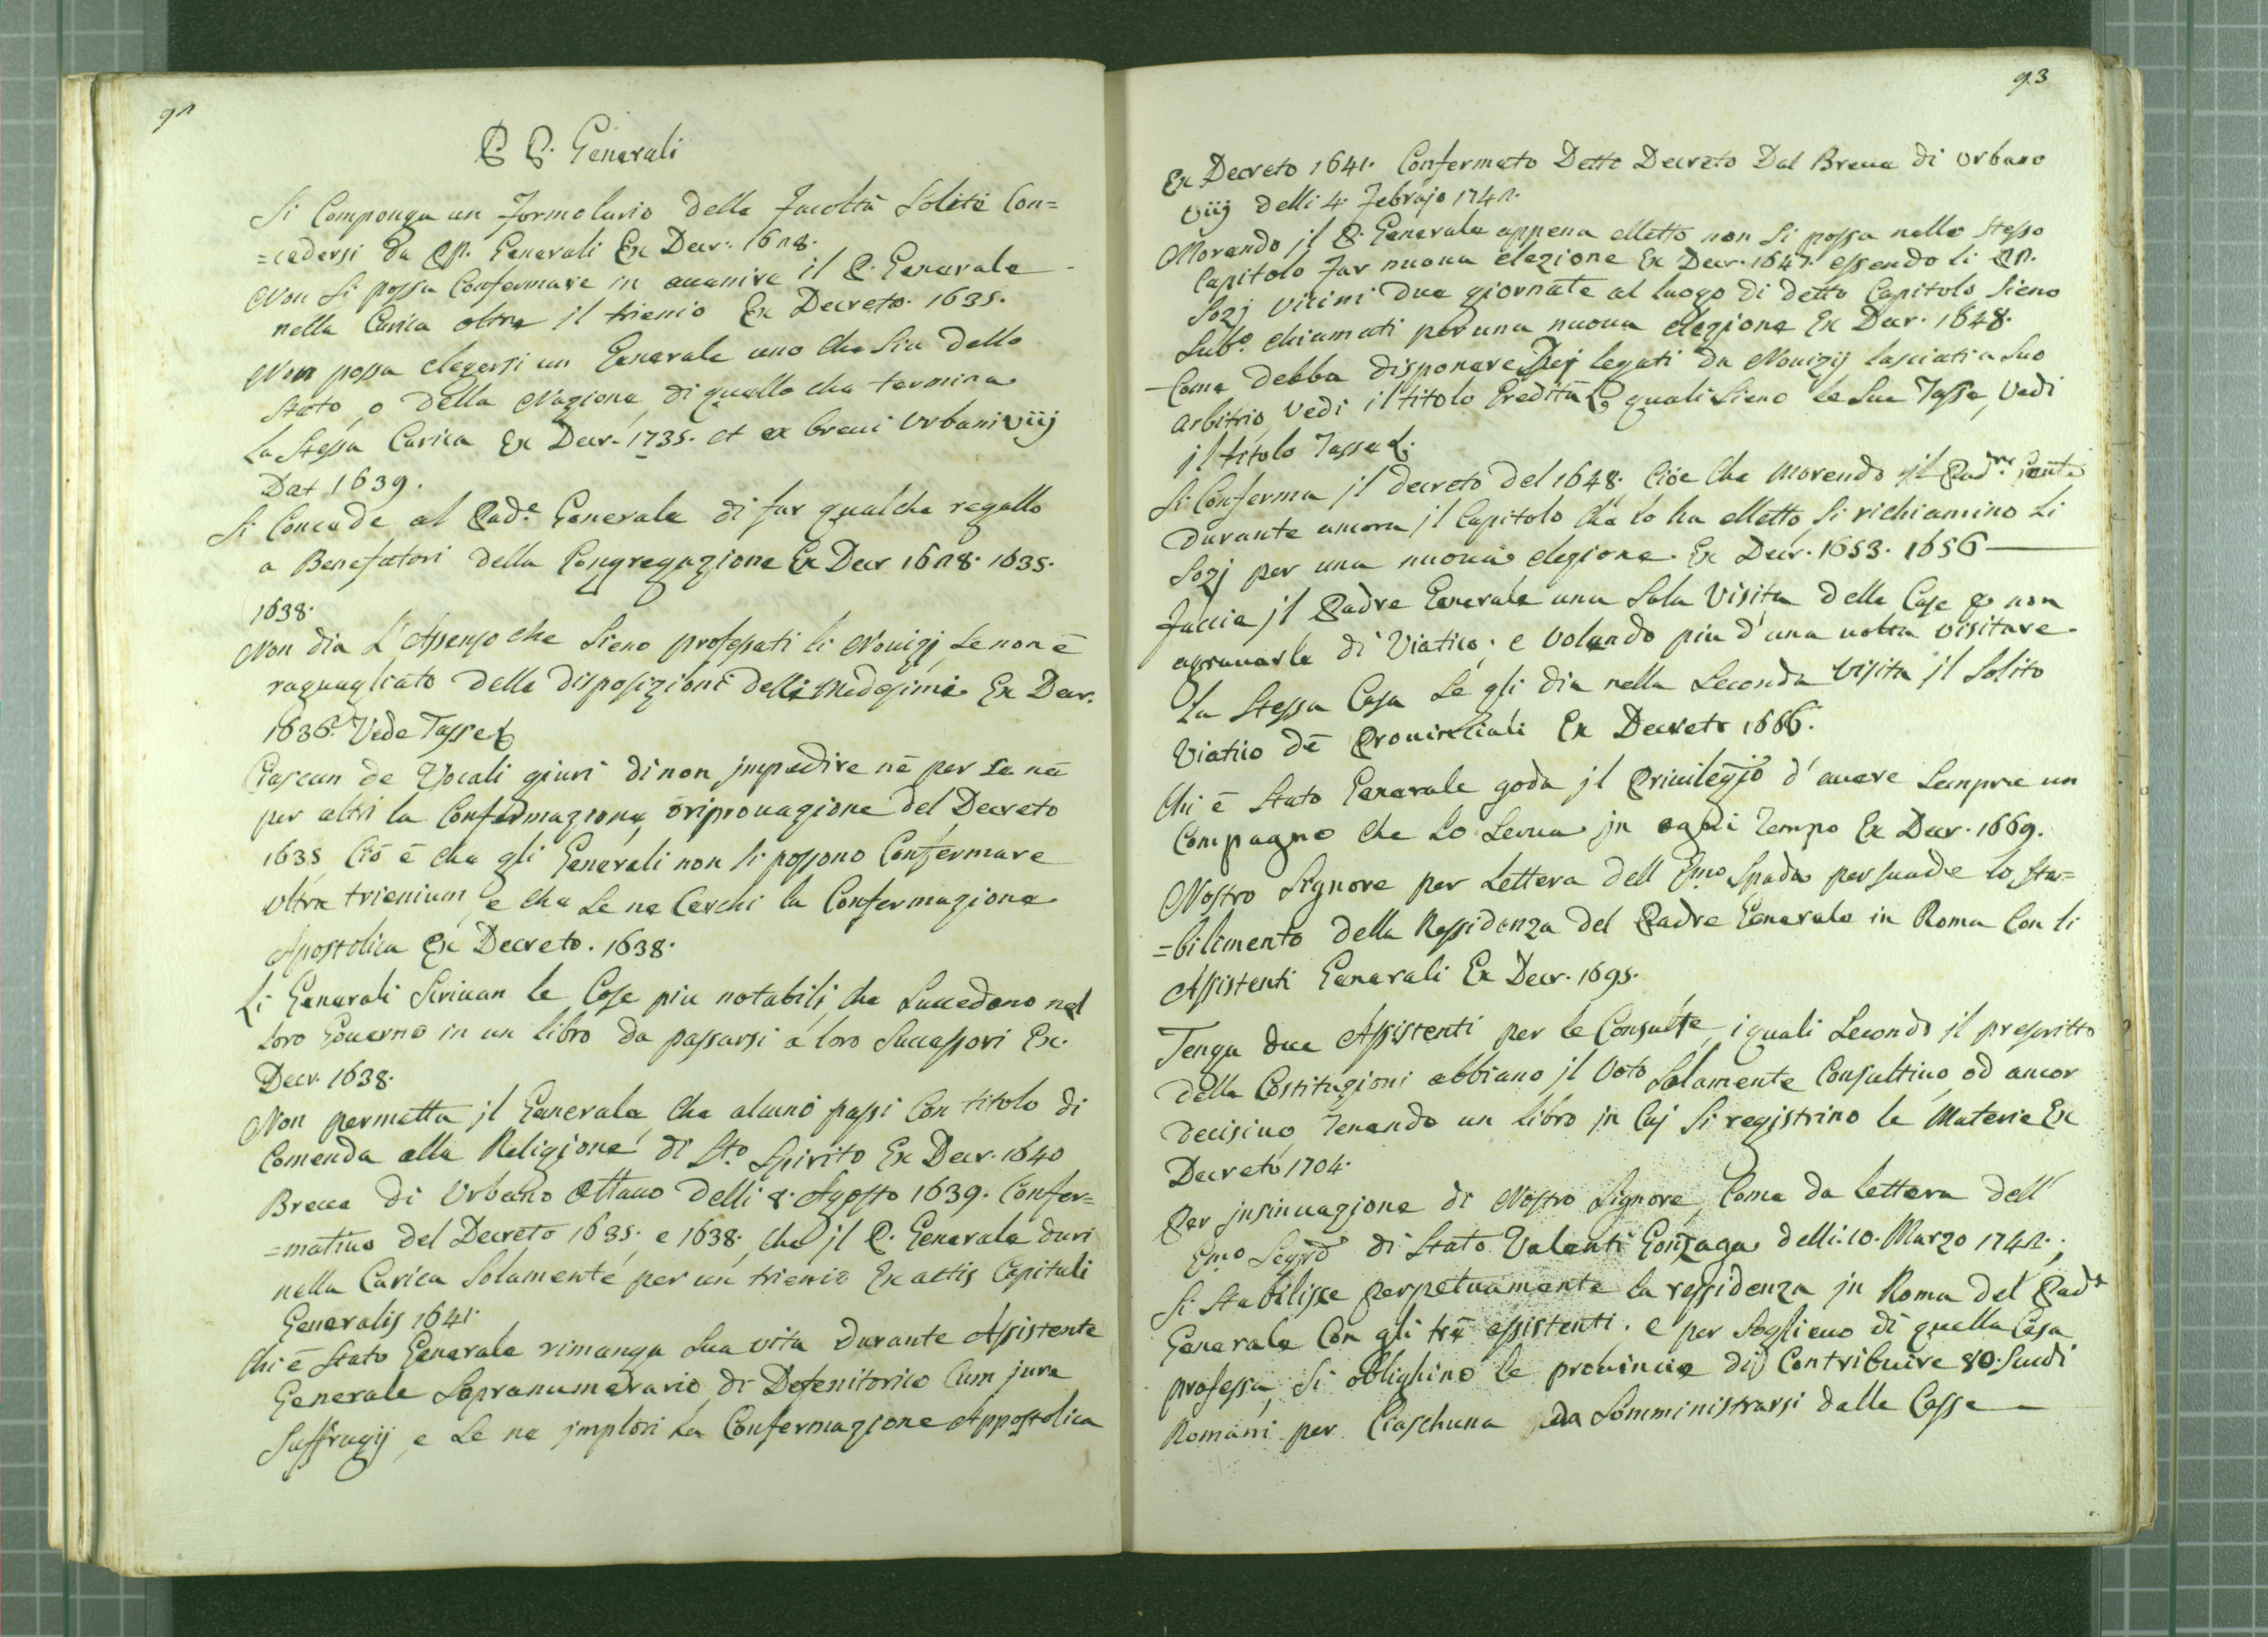 92
P. P. Generali
Si Componga un Formolario delle Facoltà Solite Con=
=cedersi da PP. Generali Ex Decr. 1628.
Non Si possa Confermare in avenire il P. Generale
nella Carica oltre il trienio Ex Decreto. 1635.
Non possa elegersi un Generale uno che Sia dello
Stato, o della Nazione, di quello che termina
La Stessa Carica Ex Decr. 1735. et ex brevi Urbani viij
Dat 1639.
Si Concede al Pad.e Generale di far qualche regallo
a Benefatori della Congregazione Ex Decr 1628. 1635.
1638.
Non dia L'Assenso che Sieno professati li Novizj, Se non è
raguagliato delle disposizioni delli Medesimi Ex Decr.
1636. Vede Tasse
Ciascun de Vocali giuri di non jmpedire nè per Se nè
per altri la Confermazione, ò riprovazione del Decreto
1635, Ciò è che gli Generali non Si possono Confermare
ultra trienium, e che Se ne Cerchi la Confermazione
Apostolica Ex Decreto. 1638.
Li Generali Scrivan le Cose piu notabili, che Succedono nel
loro Governo in un libro da passarsi a loro Successori Ex.
Decr. 1638.
Non permetta jl Generale, che alcuno passi Con titolo di
Comenda alla Religione di S.to Spirito Ex Decr. 1640
Breve di Urbano Ottavo delli 8. Agosto 1639. Confer=
=mativo del Decreto 1635. e 1638. che jl P. Generale duri
nella Carica Solamente per un trienio Ex actis Capituli
Generalis 1641.
Chi è Stato Generale rimanga Sua vita durante Assistente
Generale Sopranumerario di Defenitorio Cum jure
Suffragij, e Se ne jmplori la Confermazione Appostolica
93
Ex Decreto 1641. Confermato Dette Decreto Dal Breve di Urbano
viij delli 4. Febrajo 1742.
Morendo jl P. Generale appena elletto non Si possa nello Stesso
Capitolo Far nuova elezione Ex Decr. 1647. essendo li PP.
Sozj vicini due giornate al luogo di detto Capitolo Sieno
Sub.o chiamati per una nuova elezione Ex Decr. 1648.
Come debba disponere Dej legati da Novizij lasciati a Suo
arbitrio, Vedi il titolo Eredità quali Sieno le Sue Tasse, Vedi
jl titolo Tasse
Si Conferma jl decreto del 1648. Cioe che Morendo jl Pad.re
durante ancora jl Capitolo che lo ha elletto, Si richiamino li
Sozj per una nuova elezione. Ex Decr. 1653. 1656
Faccia jl Padre Generale una Sola Visita delle Case non
agravarle di Viatico; e volendo piu d'una volta visitare
la Stessa Casa Se gli dia nella Seconda Visita jl Solito
Viatico dè Provinciali Ex Decreto 1666.
Chi è Stato Generale goda jl Privilegjo d'avere Sempre un
Compagno che Lo Serva jn ogni Tempo Ex Decr. 1669.
Nostro Signore per Lettera dell E.mo Spada persuade lo sta=
=bilimento della Ressidenza del Padre Generale in Roma Con li
Assistenti Generali Ex Decr. 1695.
Tenga due Assistenti per le Consulte, i quali Secondo jl prescritto
delle Costituzioni abbiano jl Voto Solamente Consultivo, od ancor
decisivo, Tenendo un libro jn Cuj Si registrino le Materie Ex
Decreto 1704.
Per jnsinuazione di Nostro Signore, Come da lettera dell'
E.mo Segrō di Stato Valenti Gonzaga delli 10. Marzo 1742.,
Si Stabilisce perpetuamente la ressidenza jn Roma del Pad.e
Generale Con gli trè assistenti. e per Soglievo di quella Casa
professa, Si oblighino le provincie di Contribuire 80. Scudi
Romani per Ciaschuna da Somministrarsi dalle Casse